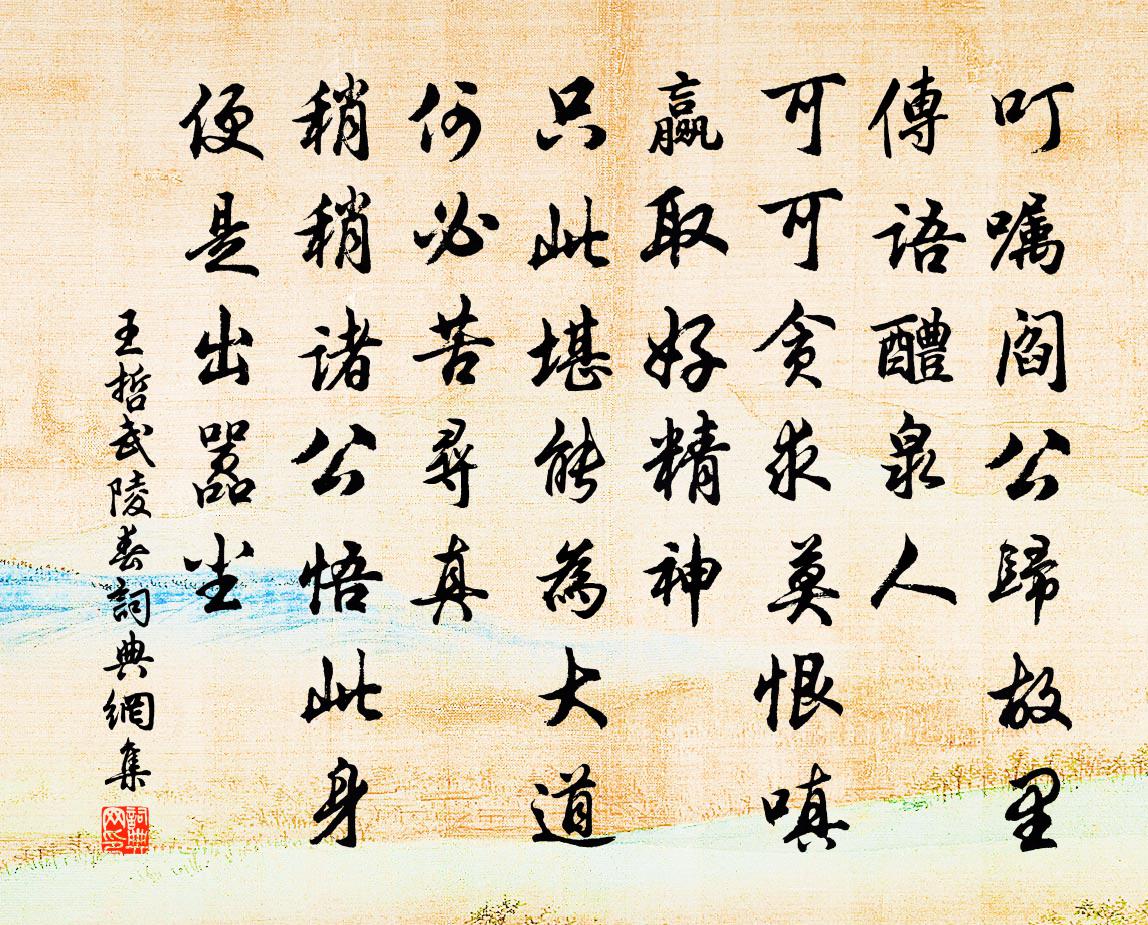 叮嘱阎公歸故里
傳语醴泉人
可可贪求莫恨嗔
赢取好精神
只此堪能為大道
何必苦尋真
稍稍诸公悟此身
便是出嚣尘
王哲武陵春詞典網集
詞典网印